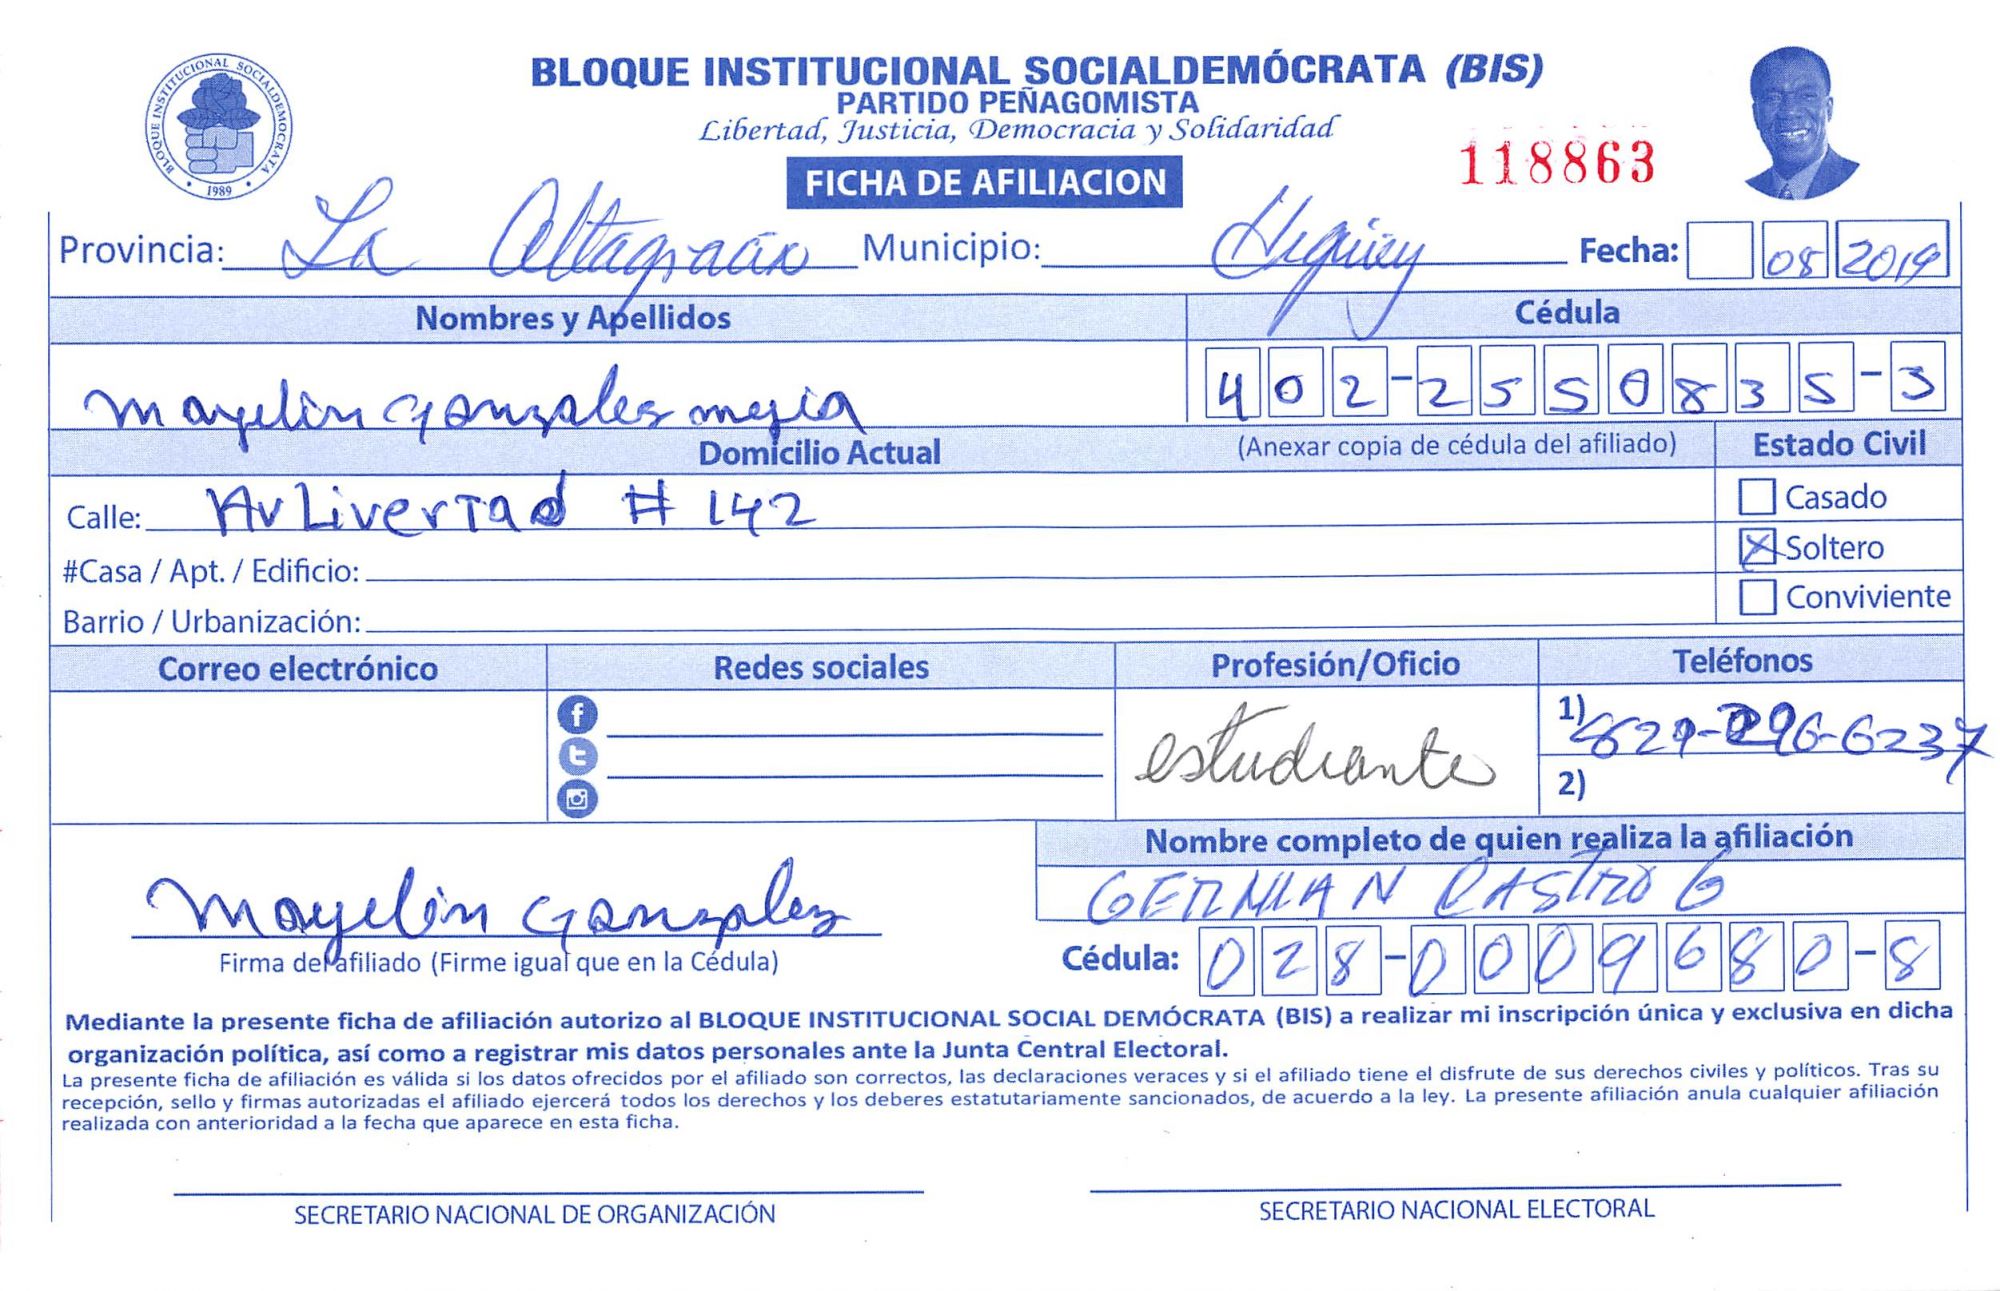 BLOQUE INSTITUCIONAL SOCIALDEMOCRATA
1989
BLOQUE INSTITUCIONAL SOCIALDEMÓCRATA (BIS)
PARTIDO PEÑAGOMISTA
Libertad, Justicia, Democracia y Solidaridad
118863
FICHA DE AFILIACION
Provincia: La Altagracia Municipio: Higüey Fecha: 08 2019
Nombres y Apellidos Cédula
Mayelin Gonzales mejia 402-2550835-3
Domicilio Actual (Anexar copia de cédula del afiliado) Estado Civil
Calle: Av Livertad # 142 Casado
#Casa / Apt. / Edificio: X Soltero
Barrio / Urbanización: Conviviente
Correo electrónico Redes sociales Profesión/Oficio Teléfonos
estudiante 1) 829-296-6237
2)
Nombre completo de quien realiza la afiliación
Mayelin Gonzalez GERMAN CASTRO G
Firma del afiliado (Firme igual que en la Cédula) Cédula: 028-0009680-8
Mediante la presente ficha de afiliación autorizo al BLOQUE INSTITUCIONAL SOCIAL DEMÓCRATA (BIS) a realizar mi inscripción única y exclusiva en dicha
organización política, así como a registrar mis datos personales ante la Junta Central Electoral.
La presente ficha de afiliación es válida si los datos ofrecidos por el afiliado son correctos, las declaraciones veraces y si el afiliado tiene el disfrute de sus derechos civiles y políticos. Tras su
recepción, sello y firmas autorizadas el afiliado ejercerá todos los derechos y los deberes estatutariamente sancionados, de acuerdo a la ley. La presente afiliación anula cualquier afiliación
realizada con anterioridad a la fecha que aparece en esta ficha.
SECRETARIO NACIONAL DE ORGANIZACIÓN SECRETARIO NACIONAL ELECTORAL